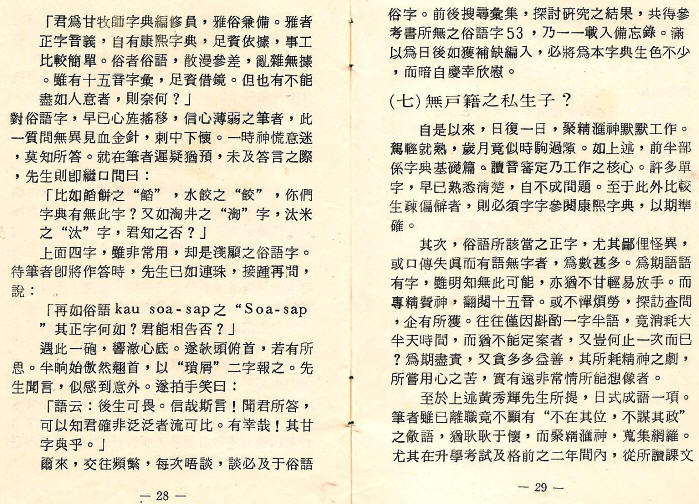 「君爲甘牧師字典編修員，雅俗兼備。雅者
正字音義，自有康熙字典，足資依據，事工
比較簡單。俗者俗語，散漫參差，亂雜無據
。雖有十五音字彙，足資借鏡。但也有不能
盡如人意者，則奈何？」
對俗語字，早已心旌搖移，信心薄弱之筆者，此
一質問無異見血金針，刺中下懷。一時神慌意迷
，莫知所答。就在筆者遲疑猶預，未及答言之際
，先生則卽繼口問曰：
「比如餡餅之“餡”，水餃之“餃”，你們
字典有無此字？又如淘井之“淘”字，汰米
之“汰”字，君知之否？」
上面四字，雖非常用，却是淺顯之俗語字。
待筆者卽將作答時，先生已如連珠，接踵再問，
說：
「再如俗語 kau soa-sap 之“Soa-sap
”其正字何如？君能相告否？」
遇此一砲，響澈心底。遂欹頭俯首，若有所
思。半晌始傲然翹首，以“瑣屑”二字報之。先
生聞言，似感到意外。遂拍手笑曰：
「語云：後生可畏。信哉斯言！聞君所答，
可以知君確非泛泛者流可比。有幸哉！其甘
字典乎。」
爾來，交往頻繁，每次唔談，談必及于俗語
— 28 —
俗字。前後搜尋彙集，探討硏究之結果，共得參
考書所無之俗語字53，乃一一載入備忘錄。滿
以爲日後如獲補缺編入，必將爲本字典生色不少
，而暗自慶幸欣慰。
(七)無戸籍之私生子？
自是以來，日復一日，聚精滙神默默工作。
駕輕就熟，歲月竟似時駒過隙。如上述，前半部
係字典基礎篇。讀音審定乃工作之核心。許多單
字，早已熟悉淸楚，自不成問題。至于此外比較
生疎偏僻者，則必須字字參閱康熙字典，以期準
確。
其次，俗語所該當之正字，尤其鄙俚怪異，
或口傳失眞而有語無字者，爲數甚多。爲期語語
有字，雖明知無此可能，亦猶不甘輕易放手。而
專精費神，翻閱十五音。或不憚煩勞，探訪查問
，企有所獲。往往僅因斟酌一字半語，竟消耗大
半天時間，而猶不能定案者，又豈何止一次而巳
？爲期盡責，又貪多多益善，其所耗精神之劇，
所嘗用心之苦，實有遠非常情所能想像者。
至於上述黃秀輝先生所提，日式成語一項。
筆者雖巳離職竟不顧有“不在其位，不謀其政”
之儆語，猶耿耿于懷，而聚精滙神，蒐集網羅。
尤其在升學考試及格前之二年間內，從所讀課文
— 29 —